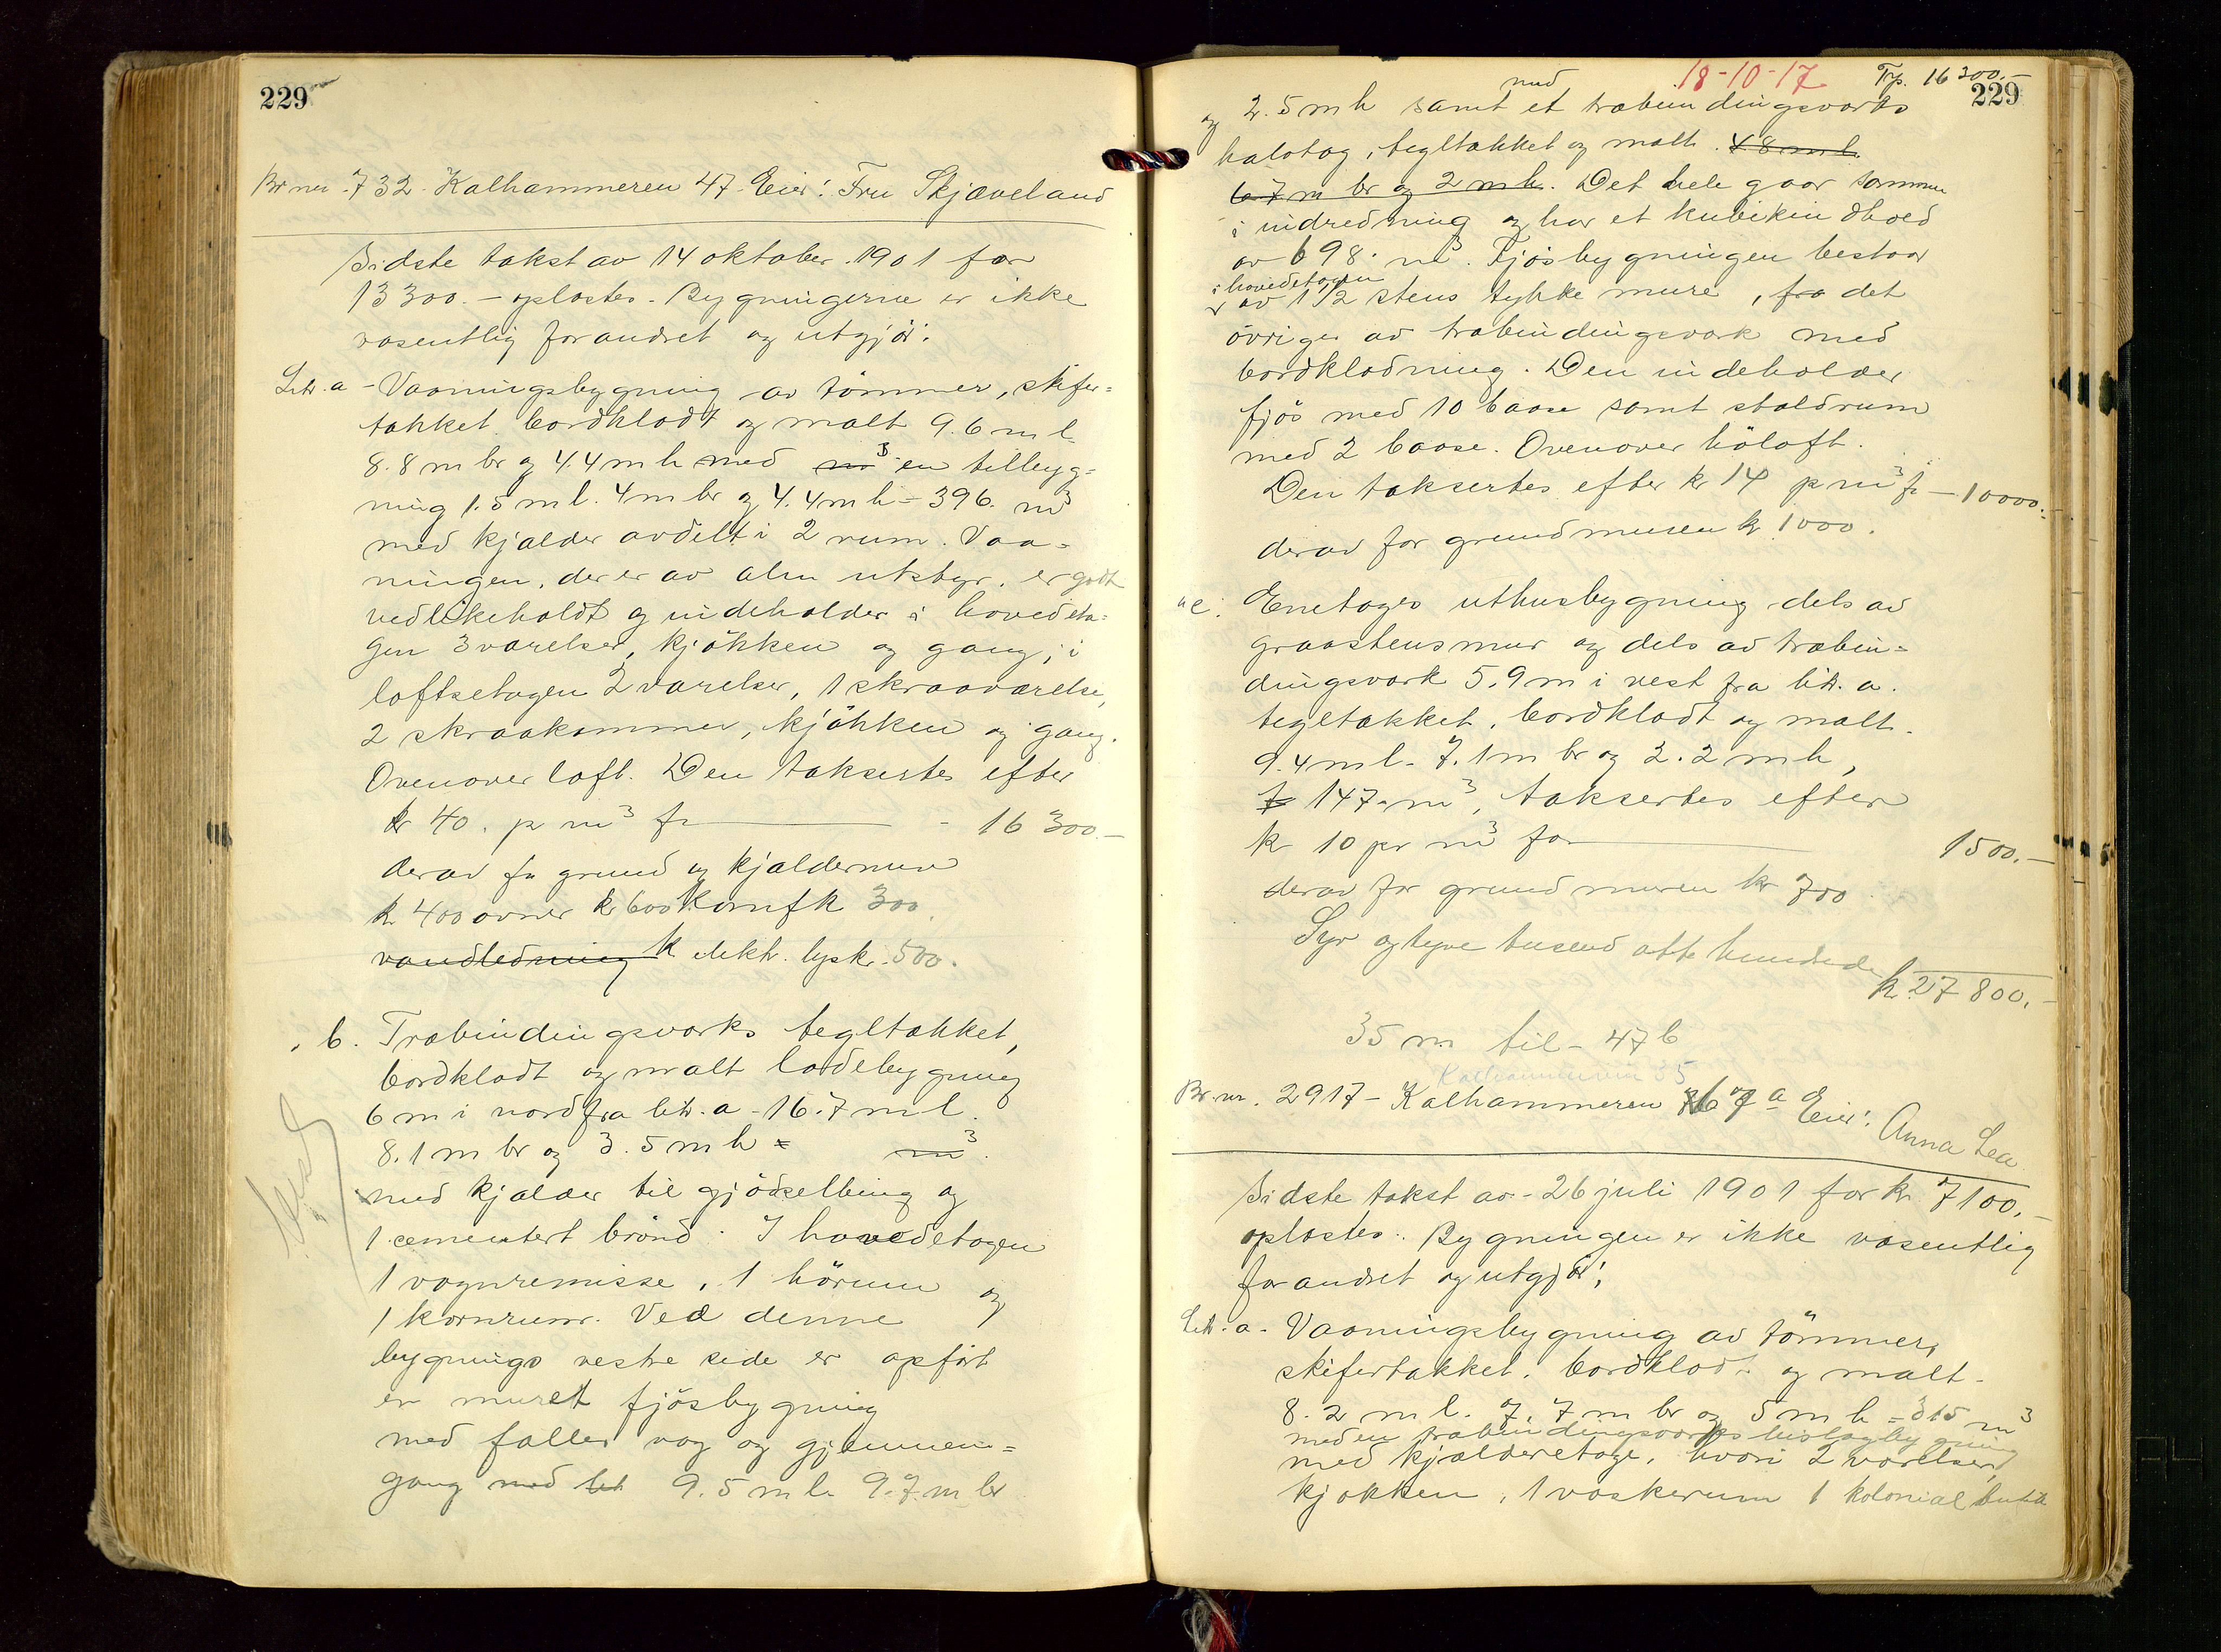 229
Br nr. 732. Kalhammeren 47. Eier: Fru Skjæveland
Sidste takst av 14 oktober. 1901 for
13300.- oplæstes. Bygningerne er ikke
væsentlig forandret og utgjør:
Litr. a - Vaaningsbygning av tömmer, skifer=
tækket bordklædt og malt 9.6 m l
8.8 m br og 4.4 m h med m³ en tilbyg=
ning 1.5 m l. 4 m br og 4.4 m h = 396. m³
med kjælder avdelt i 2 rum. Vaa=
ningen, der er av alm utstyr, er godt
vedlikeholdt og indeholder i hovedeta=
gen 3 værelser, kjökken og gang; i
loftsetagen 2 værelser, 1 skraaværelse,
2 skraakammer, kjökken og gang.
Ovenover loft. Den taksertes efter
kr 40. pr m³ fr - 16 300.-
derav for grund og kjældermur
kr 400 ovner kr 600 Komf k 300.
vandledning k elektr. lys kr. 500.
" b. Træbindingsverks tegltækket,
bordklædt og malt ladebygning
6 m i nord fra litr. a - 16.7 m l.
8.1 m br og 3.5 m h = m³.
med kjælder til gjödselbing og
1 cementert brönd. I hovedetagen
1 vognremisse, 1 hörum og
1 kornrum. Ved denne
bygnings vestre side er opfört
en muret fjösbygning
med faller vog og gjennem=
gang med let 9.5 m l. 9.7 m br
18-10-17 Trp. 16 300.-
229
med
og 2.5 m h samt et træbindingsverks
halvtag, tegltækket og malt. 4.8 m l.
6.7 m br og 2 m h. Det hele gaar sammen
i indredning og har et kubikindhold
av 698. m³. Fjösbygningen bestaar
i hovedetagen
av 1 1/2 stens tykke mure, fra det
övrige av træbindingsverk med
bordklædning. Den indeholder
fjös med 10 baase samt staldrum
med 2 baase. Ovenover höloft.
Den taksertes efter kr 14 pr m³ fr - 10000.-
derav for grundmuren kr 1000.
" c. Enetages uthusbygning dels av
graastensmur og dels av træbin=
dingsverk 5.9 m i vest fra litr. a.
tegltækket, bordklædt og malt.
9.4 m l. 7.1 m br og 2.2 m h,
147. m³, taksertes efter
kr 10 pr m³ for 1500.-
derav for grundmuren kr 700
Syv og tyve tusend otte hundrede
kr. 27 800.-
35 m til - 47 b
Kalhammervn 35
Br. nr. 2917 - Kalhammeren 67 a Eier: Anna Lea.
Sidste takst av - 26 juli 1901 for kr. 7100.-
oplæstes. Bygningen er ikke væsentlig
forandret og utgjør:
Litr. a - Vaaningsbygning av tömmer,
skifertækket. bordklædt og malt.
8.2 m l. 7.7 m br og 5 m h = 315 m³
med en træbindingsverks bislagbygning
med kjælderetage, hvori 2 værelser,
kjøkken, 1 vaskerum 1 kolonial butik